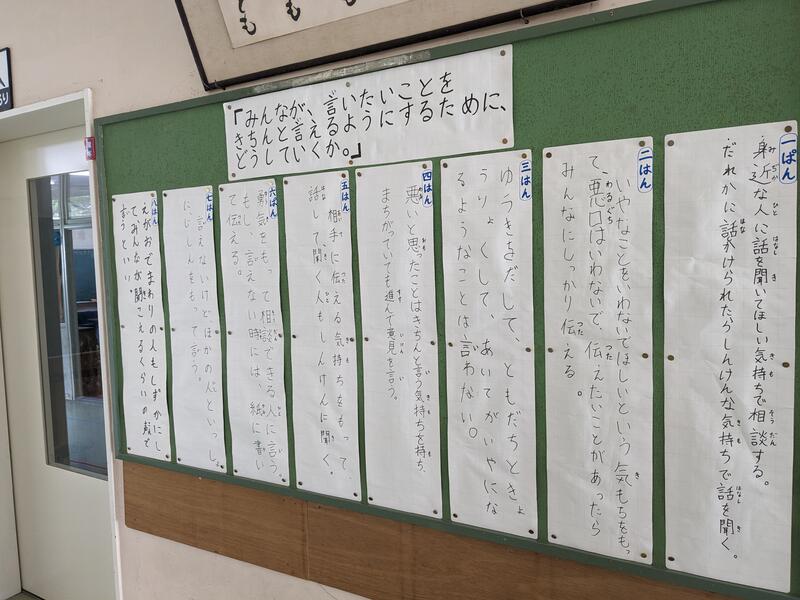 とも
「みんなが、言いたいことを
きちんと言えるようにするために、
どうしていくか。」
一ぱん
身近な人に話を聞いてほしい気持ちで相談する。
だれかに話かけられたらしんけんな気持ちで話を聞く。
二はん
いやなことをいわないでほしいという気もちをもっ
て、悪口はいわないで、伝えたいことがあったら
みんなにしっかり伝える。
三はん
ゆうきをだして、ともだちときょ
うりょくして、あいてがいやにな
るようなことは言わない。
四はん
悪いと思ったことはきちんと言う気持ちを持ち、
まちがっていても進んで意見を言う。
五はん
相手に伝える気持ちをもって、
話して聞く人もしんけんに聞く。
六ぱん
勇気をもって相談できる人に言う。
もし、言えない時には、紙に書い
て伝える。
七はん
言えないけどほかの人といっしょ
に、じしんをもって言う。
八はん
えがおでまわりの人もしずかにし
てみんなが聞こえるくらいの声で
言うといい。